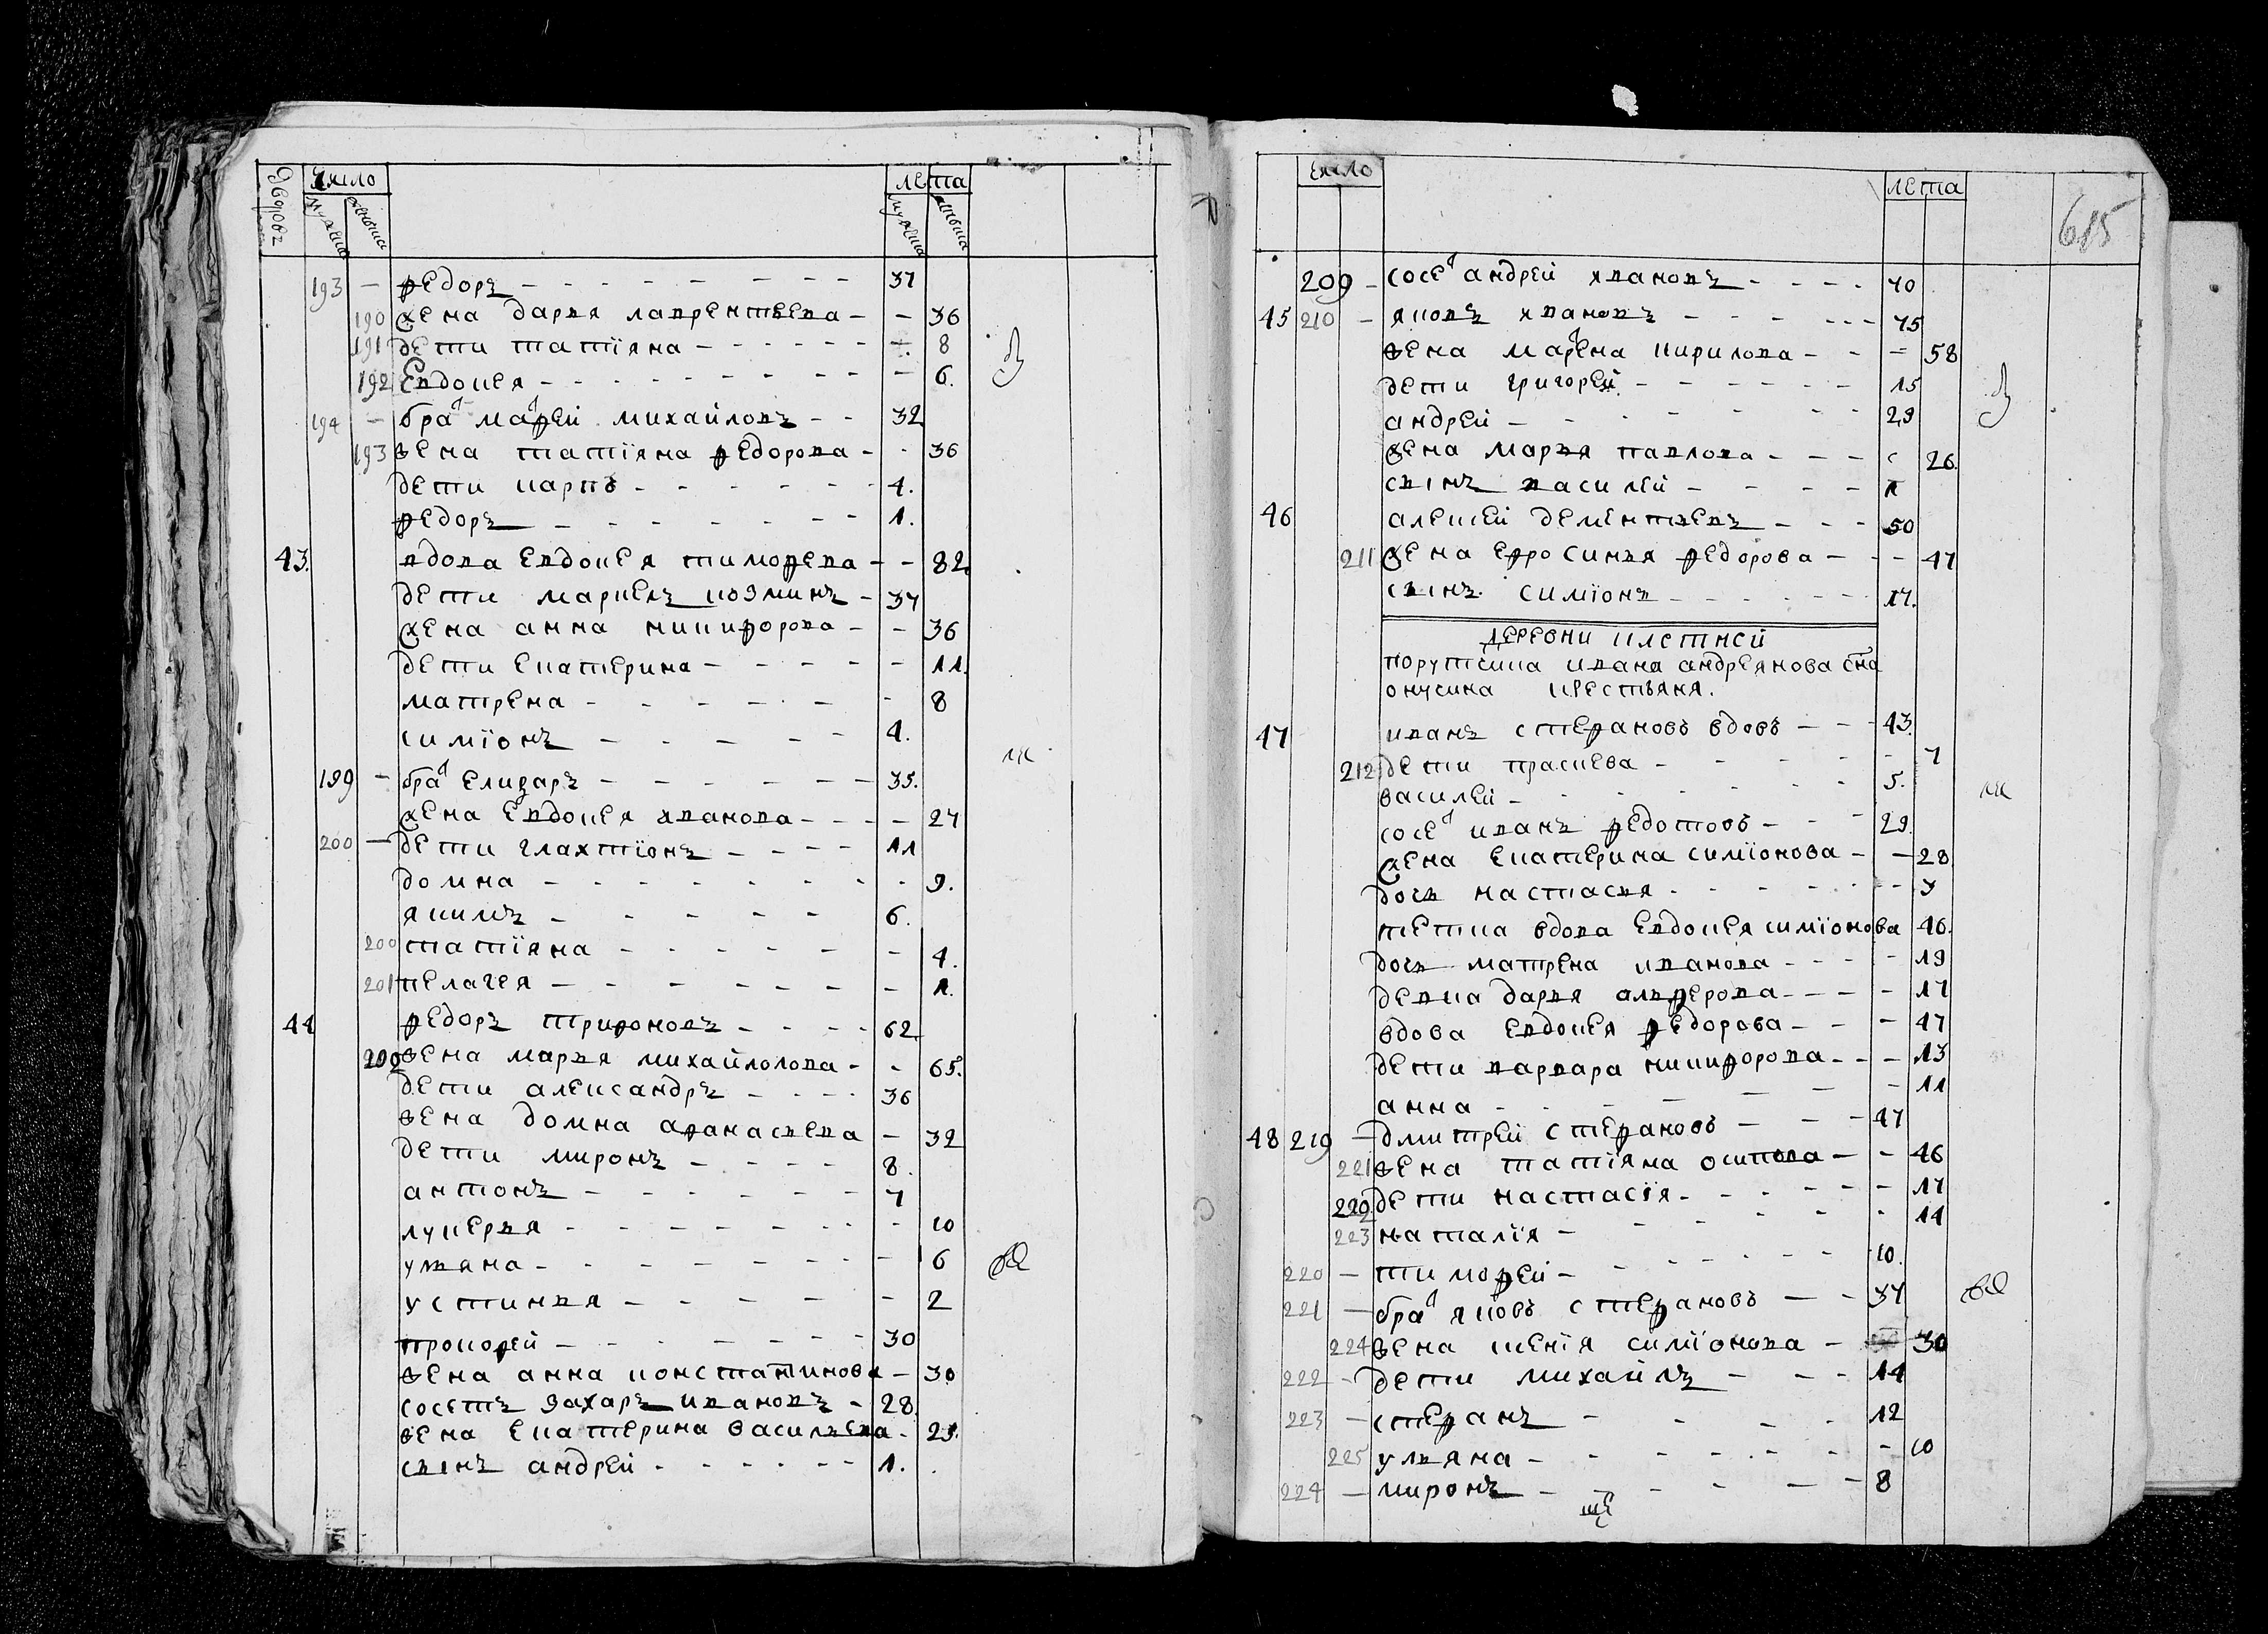 дворовъ
число
лета
мужеска
женска
мужеска
женска
193 — федоръ — 37
190 жена дарья лаврентьева — — 36
191 дети татїяна — — 8
192 Евдокея — — 6.
194 — бра т марфей михайловъ — 32
193 жена татїяна федорова — 36
дети карпъ — 4.
федоръ — 1.
43. вдова Евдокея тимофева — — 82.
дети маркелъ козминъ — 37
жена анна никифорова — — 36
дети Екатерина — — 11.
матрена — — 8
симїонъ — 4.
199 — бра т Елизаръ — 35.
жена Евдокея иванова — — 27
200 — дети глахтїонъ — 11
домна — — 9.
якимъ — 6.
200 татїяна — — 4.
201 пелагея — — 1.
44 федоръ трифоновъ — 62
202 жена марья михайлолова — — 65.
дети александръ — 36
жена домна афанасьева — 32
дети миронъ — 8.
антонъ — 7
лукерья — — 10
ульяна — — 6
устинья — — 2
прокофей — 30
жена анна констатинова — 30
сосетъ захаръ ивановъ — 28.
жена Екатерина васильева — 23.
сынъ андрей — 1.
число
лета
615
209 — сосе т андрей ивановъ — 40
45 210 — яковъ ивановъ — 75
жена марфена кирилова — — 58
дети григорей — 15
андрей — 29
жена марья павлова — 26.
сынъ василей — 1
46 алексей деменьтьевъ — 50
211 жена ефросинья федорова — — 47
сынъ симїонъ — 17.
деревни плетней
порутчика ивана андреянова сна
онусина крестьяня.
47 иванъ стефановъ вдовъ — 43.
212 дети праскева — — 7
василей — 5.
сосе т иванъ федотовъ — 29.
жена Екатерина симїонова — — 28
дочь настасья — — 3
тетка вдова Евдокея симїонова 46.
дочь матрена иванова — — 19
девка дарья алферова — — 17
вдова Евдокея федорова — — 47
дети варвара никифорова — — 13
анна — — 11
48 219 — дмитрей стефановъ — 47
221 жена татїяна осипова — — 46
222 дети настасїя — — 17
223 наталїя — — 14
220 — тимофей — 10.
221 — бра т яковъ стефановъ — 37
224 жена ксенїя симїонова — 30
222 — дети михайлъ — 14
223 — стефанъ — 12
225 ульяна — — 10
224 — миронъ — 8